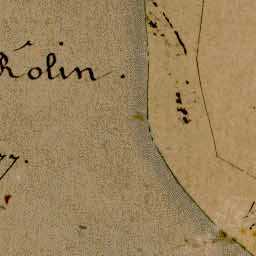 Kolin.
77.